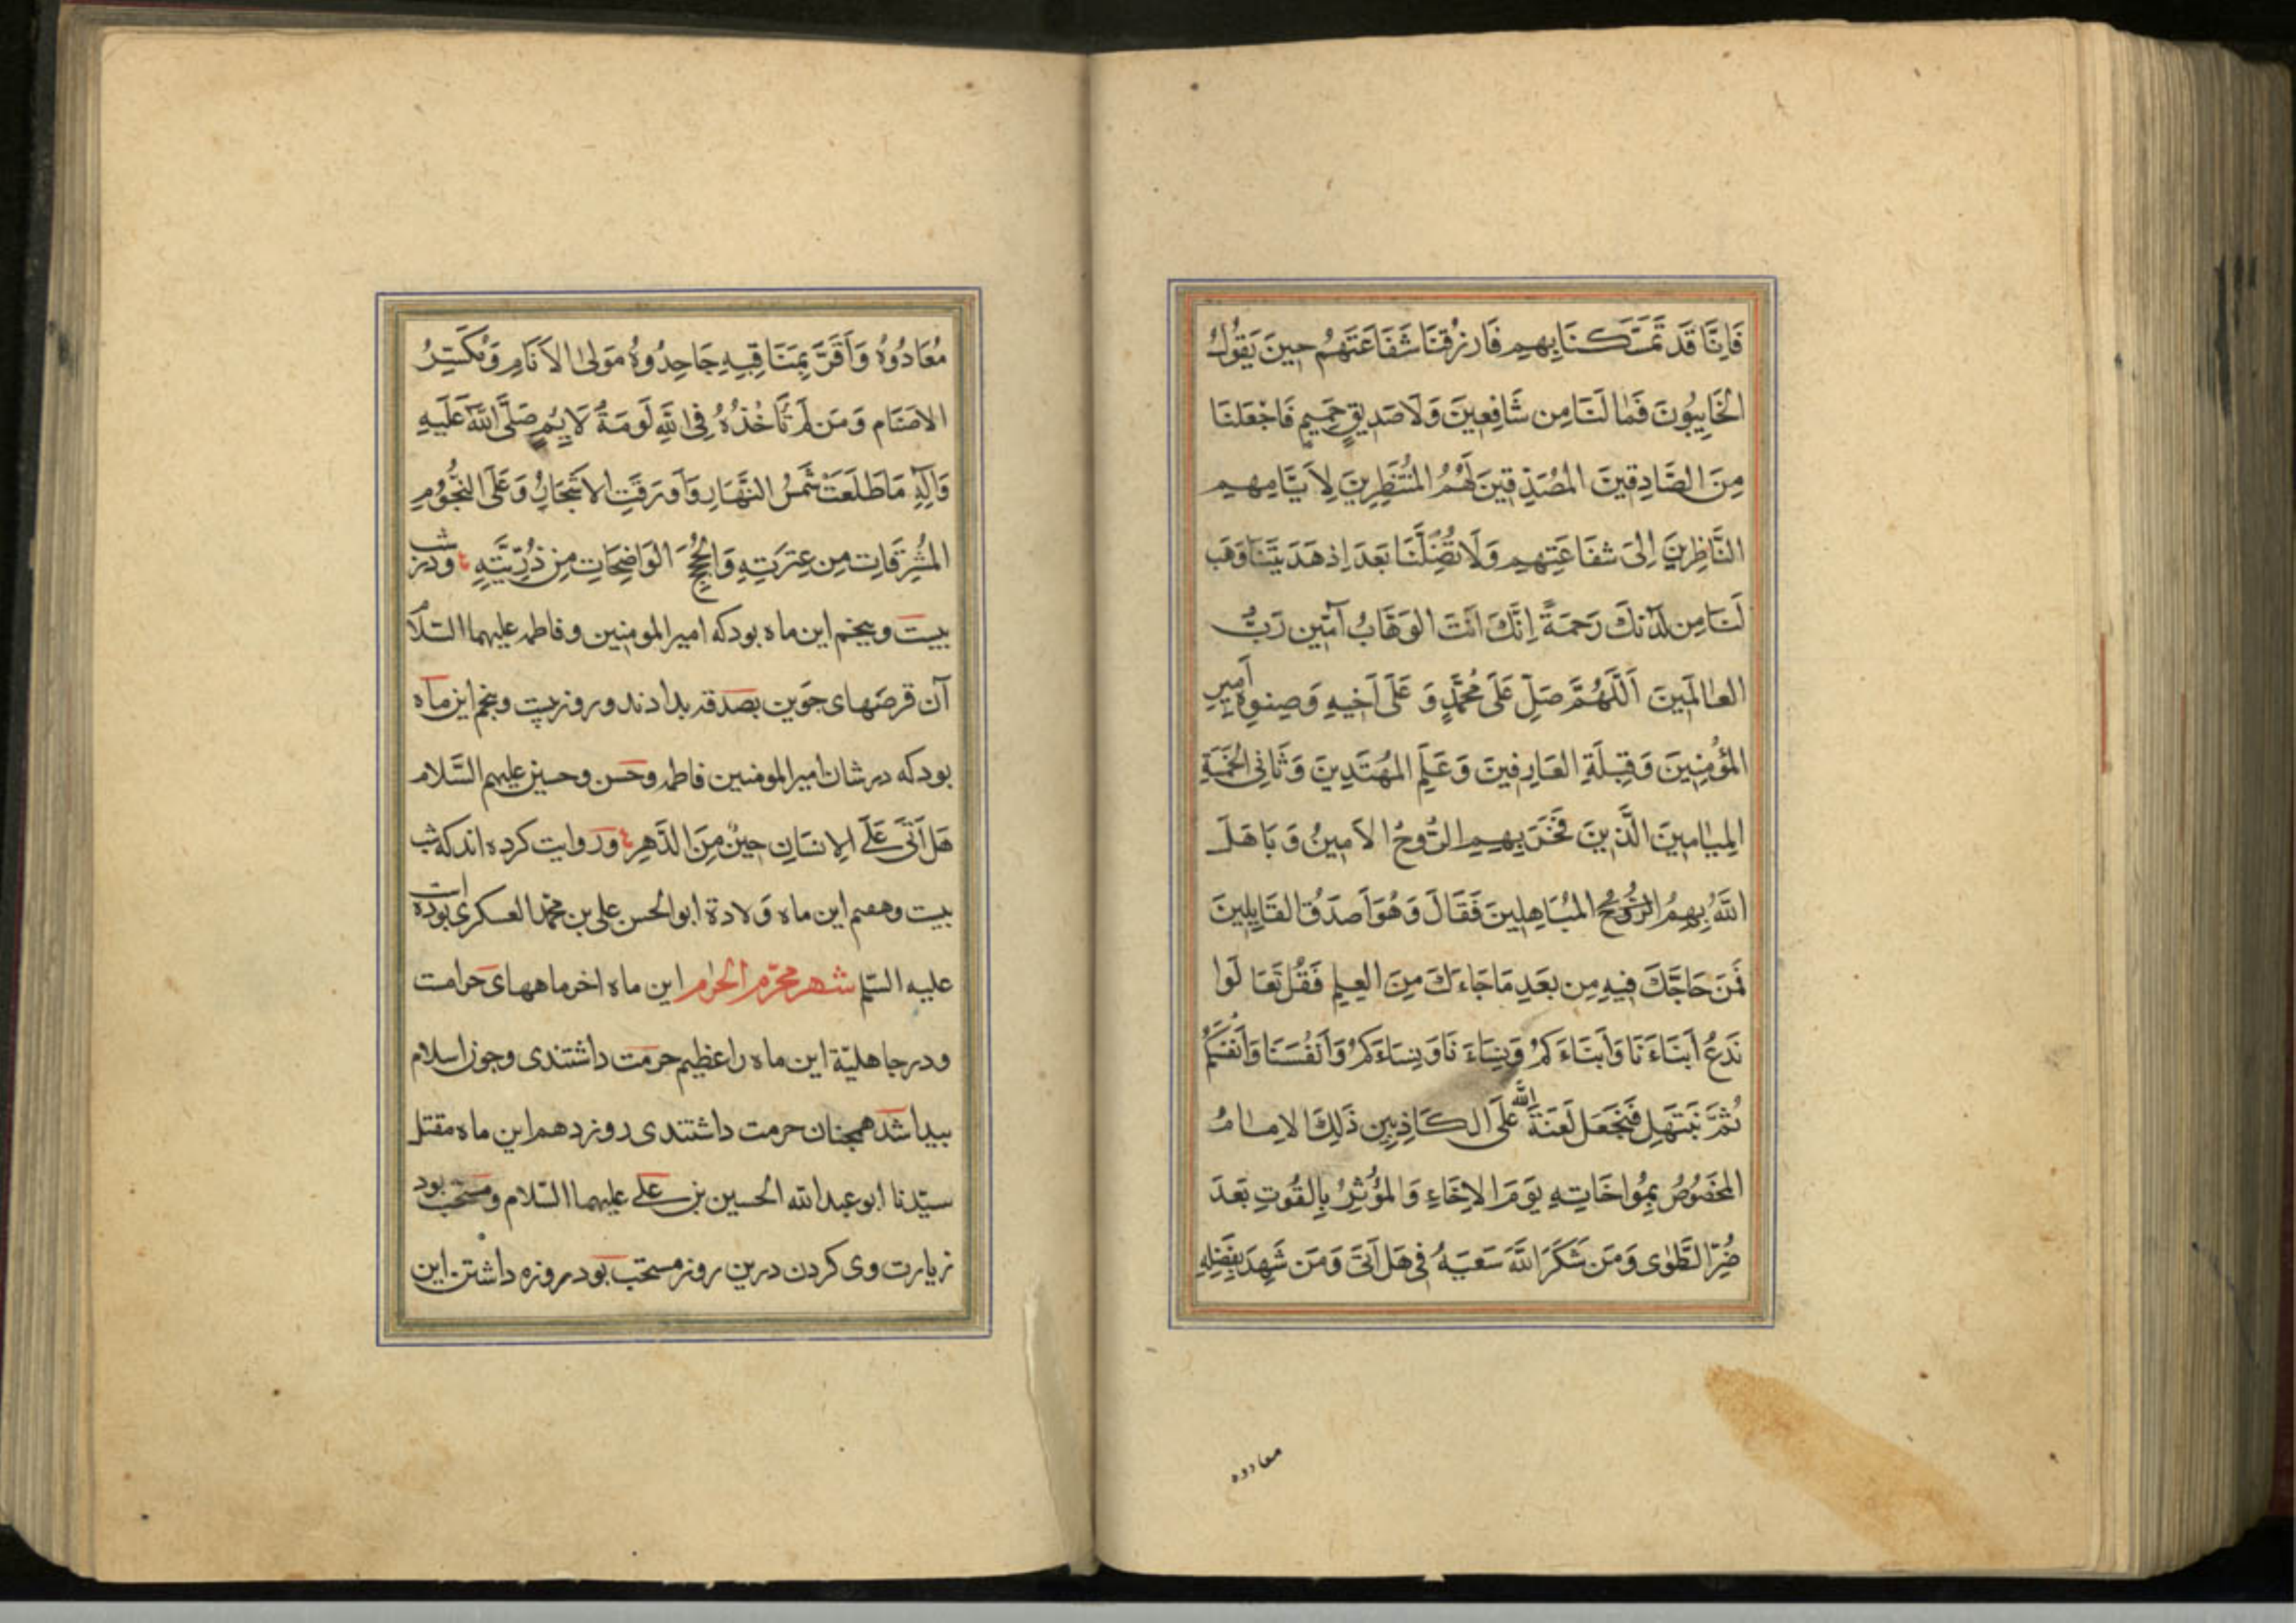 فَاِنَّا قَد تَمَسَّكنَا بِهِم فَارزُقنَا شَفَاعَتَهُم حِينَ يَقُولُ
الخَايِبُونَ فَمَا لَنَا مِن شَافِعِينَ وَلَا صَدِيقٍ حَمِيمٍ فَاجْعَلنَا
مِنَ الصَّادِقِينَ المُصَدِّقِينَ لَهُمُ المُنتَظِرِينَ لِأَيَّامِهِم
النَّاظِرِينَ اِلىٰ شَفَاعَتِهِم وَلَا تُضِلَّنَا بَعدَ اِذ هَدَيتَنَا وَهَب
لَنَا مِن لَدُنكَ رَحمَةً اِنَّكَ اَنتَ الوَهَّابُ آمِين رَبَّ
العَالَمِينَ اَللَّهُمَّ صَلِّ عَلَى مُحَمَّدٍ وَ عَلَى اَخِيهِ وَصِنوِهِ اَمِيرِ
المُؤمِنِينَ وَقِبلَةِ العَارِفِينَ وَعَلَمِ المُهتَدِينَ وَثَانِى الخَمسَةِ
المَيَامِينَ الَّذِينَ فَخَرَ بِهِمِ الرُّوحُ الاَمِينُ وَ بَاهَلَ
اللّٰهُ بِهِمُ الرُّوحُ المُبَاهِلِينَ فَقَالَ وَهُوَ اَصدَقُ القَايِلِينَ
فَمَن حَاجَّكَ فِيهِ مِن بَعدِ مَا جَاءَكَ مِنَ العِلمِ فَقُل تَعَالَوا
نَدعُ اَبنَاءَنَا وَاَبنَاءَكُم وَنِسَاءَنَا وَنِسَاءَكُم وَاَنفُسَنَا وَاَنفُسَكُم
ثُمَّ نَبتَهِل فَنَجعَل لَعنَةَ اللّٰه عَلَى الكَاذِبِين ذَلِكَ الاِمَامُ
المَخصُوصُ بِمُواخَاتِهِ يَومَ الاِخَاءِ وَالمُؤثِرُ بِالقُوتِ بَعدَ
ضُرِّ الطَّوىٰ وَمَن شَكَرَ اللّٰهَ سَعيَهُ فِى هَل اَتىٰ وَمَن شَهِدَ بِفَضلِهِ
معادوه
مُعَادُوهُ وَاَقَرَّ بِمَنَاقِبِهِ جَاحِدُوهُ مَولىٰ الاَنَامِ وَمُكَسِّرُ
الاَصنَام وَمَن لَم تَأخُذْهُ فِى اللّٰهِ لَومَةُ لَايِمٍ صَلَّى اللّٰهُ عَلَيهِ
وَآلِهِ مَا طَلَعَت شَمسُ النَّهَارِ وَاَورَقَتِ الاَشجَارُ وَعَلَى النُّجُومِ
المُشرِقَاتِ مِن عِترَتِهِ وَالحُجَجِ الوَاضِحَاتِ مِن ذُرِّيَّتِهِ ودر شب
بیست وپنجم این ماه بود که امیرالمومنین و فاطمه علیهما السّلام
آن قرصهای جَوین بصدقه بدادند و روز بیست وپنجم این ماه
بود که در شان امیرالمومنین فاطمه وحسن وحسین علیهم السّلام
هَل اَتىٰ عَلَى الاِنسَانِ حِينٌ مِنَ الدَّهرِ و روایت کرده اند که شب
بیست وهفتم این ماه وَلادة ابوالحسن علی بن محمّد العسکری بوده است
علیه السّلم شهر محرّم الحرام این ماه اخر ماههای حرامست
ودر جاهلیّة این ماه را عظیم حرمت داشتندی وچون اسلام
پیدا شد همچنان حرمت داشتندی روز دهم این ماه مقتل
سیّدنا ابوعبدالله الحسین بن علی علیهما السّلام ومستحب بود
زیارت وی کردن درین روز مستحب بود روزه داشتن این